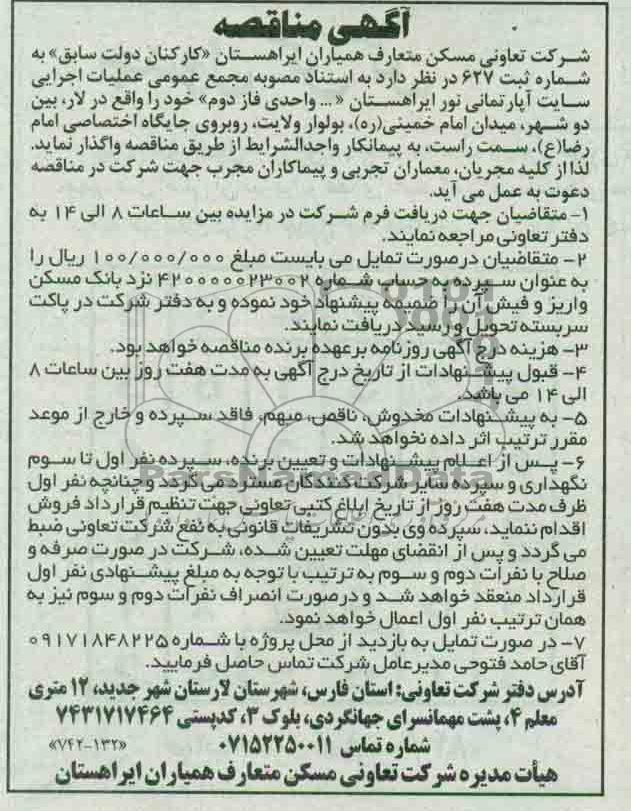 آگهی مناقصه
شرکت تعاونی مسکن متعارف همیاران ایراهستان «کارکنان دولت سابق» به
شماره ثبت ۶۲۷ در نظر دارد به استناد مصوبه مجمع عمومی عملیات اجرایی
سایت آپارتمانی نور ایراهستان «... واحدی فاز دوم» خود را واقع در لار، بین
دو شهر، میدان امام خمینی(ره)، بولوار ولایت، روبروی جایگاه اختصاصی امام
رضا(ع)، سمت راست، به پیمانکار واجدالشرایط از طریق مناقصه واگذار نماید.
لذا از کلیه مجریان، معماران تجربی و پیماکاران مجرب جهت شرکت در مناقصه
دعوت به عمل می آید.
۱- متقاضیان جهت دریافت فرم شرکت در مزایده بین ساعات ۸ الی ۱۴ به
دفتر تعاونی مراجعه نمایند.
۲- متقاضیان درصورت تمایل می بایست مبلغ ۱۰۰/۰۰۰/۰۰۰ ریال را
به عنوان سپرده به حساب شماره ۴۲۰۰۰۰۰۲۳۰۰۲ نزد بانک مسکن
واریز و فیش آن را ضمیمه پیشنهاد خود نموده و به دفتر شرکت در پاکت
سربسته تحویل و رسید دریافت نمایند.
۳- هزینه درج آگهی روزنامه برعهده برنده مناقصه خواهد بود.
۴- قبول پیشنهادات از تاریخ درج آگهی به مدت هفت روز بین ساعات ۸
الی ۱۴ می باشد.
۵- به پیشنهادات مخدوش، ناقص، مبهم، فاقد سپرده و خارج از موعد
مقرر ترتیب اثر داده نخواهد شد.
۶- پس از اعلام پیشنهادات و تعیین برنده، سپرده نفر اول تا سوم
نگهداری و سپرده سایر شرکت کنندگان مسترد می گردد و چنانچه نفر اول
ظرف مدت هفت روز از تاریخ ابلاغ کتبی تعاونی جهت تنظیم قرارداد فروش
اقدام ننماید، سپرده وی بدون تشریفات قانونی به نفع شرکت تعاونی ضبط
می گردد و پس از انقضای مهلت تعیین شده، شرکت در صورت صرفه و
صلاح با نفرات دوم و سوم به ترتیب با توجه به مبلغ پیشنهادی نفر اول
قرارداد منعقد خواهد شد و درصورت انصراف نفرات دوم و سوم نیز به
همان ترتیب نفر اول اعمال خواهد نمود.
۷- در صورت تمایل به بازدید از محل پروژه با شماره ۰۹۱۷۱۸۴۸۲۲۵
آقای حامد فتوحی مدیرعامل شرکت تماس حاصل فرمایید.
آدرس دفتر شرکت تعاونی: استان فارس، شهرستان لارستان شهر جدید، ۱۲ متری
معلم ۴، پشت مهمانسرای جهانگردی، بلوک ۳، کدپستی ۷۴۳۱۷۱۷۴۶۴
شماره تماس ۰۷۱۵۲۲۵۰۰۱۱ «۷۴۲-۱۳۲»
هیأت مدیره شرکت تعاونی مسکن متعارف همیاران ایراهستان